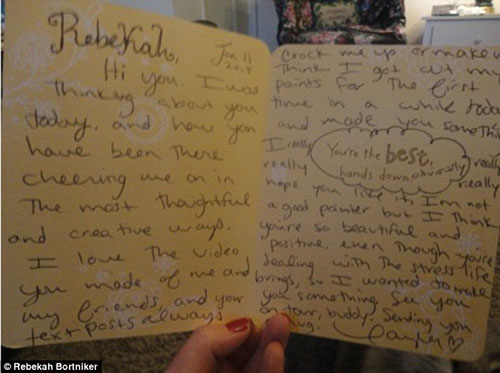 Rebekah,
Jan 11
Hi you. I was
thinking about you
today, and how you
have been there
cheering me on in
the most thoughtful
and creative ways.
I love the video
you made of me and
my friends, and your
text posts always
crack me up or make
think. I got out my
paints for the first
time in a while toda
and made you somethin
I really
really
really
really
hope you like it. I'm not
You're the best,
hands down, obviously
a good painter but I think
you're so beautiful and
positive, even though you're
dealing with the stress life
brings, so I wanted to make
you something. See you
on tour, buddy. Sending you
hug.
© Rebekah Bortniker